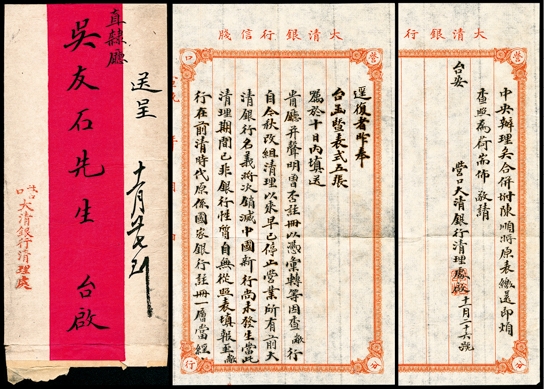 直隸廳
吳友石先生 台啟
送呈
十一月廿七到
大清銀行清理處
大清銀行信牋
營
口
分
行
逕復者昨奉
台函暨表式五張
屬於十日內填送
貴廳并聲明曾否註冊以憑彙轉等因查敝行
自今秋改組清理以來早已停止營業所有前大
清銀行名義將次銷滅中國新行尚未發生當此
清理期間已非銀行性質自無從照表填報至敝
行在前清時代原係國家銀行註冊一層當經
大清銀行
營
行
分
中央辦理矣合併附陳順將原表繳送即煩
查照為荷耑佈敬請
台安
營口大清銀行清理處啟 十一月二十六號